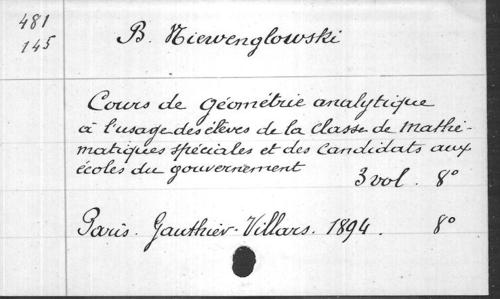 481
145
B. Niewenglowski
Cours de géométrie analytique
à l'usage des élèves de la classe de Mathé-
matiques spéciales et des candidats aux
écoles du gouvernement
3 vol. 8°
Paris. Gauthier-Villars. 1894. 8°